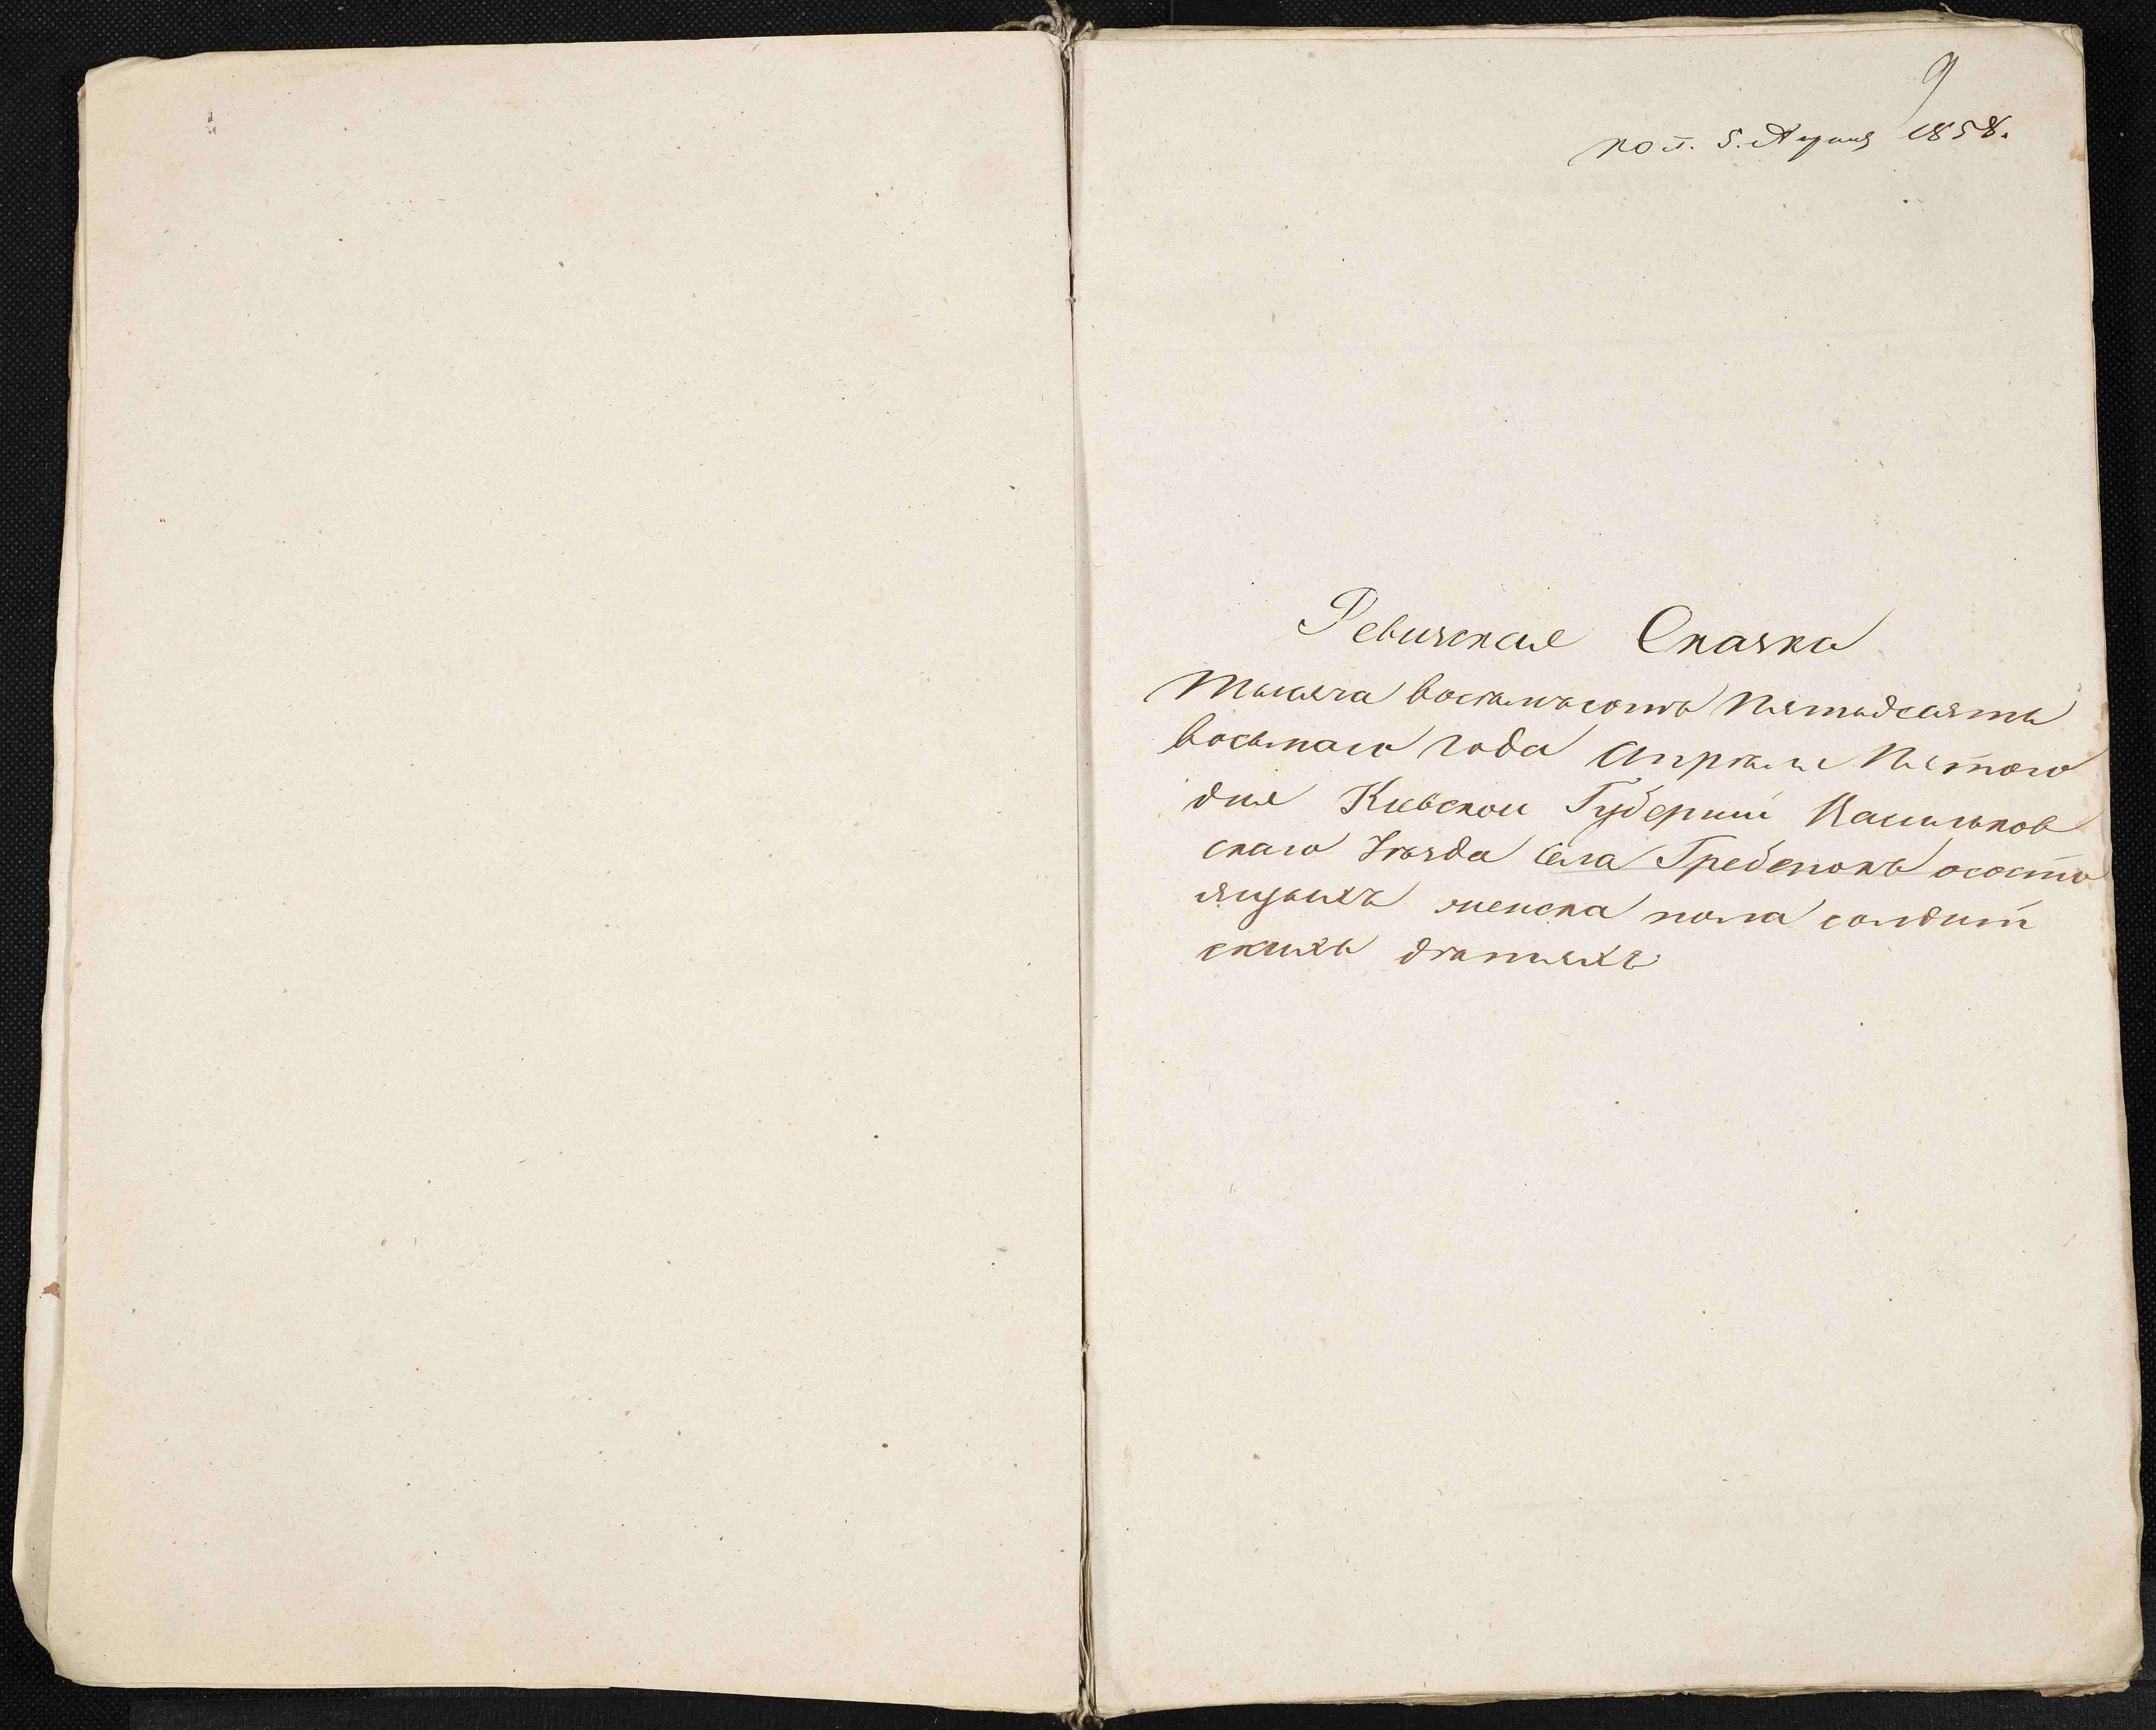 9
пол. 5. Апреля 1858.
Ревизская Сказка
Тысяча восемьсотъ Пятьдесятъ
восьмаго года Апреля Пятого
дня Киевской Губерніи Васильков
скаго Уѣзда Села Гребенокъ ососто
ящихъ женска пола солдат
скихъ дѣтяхъ